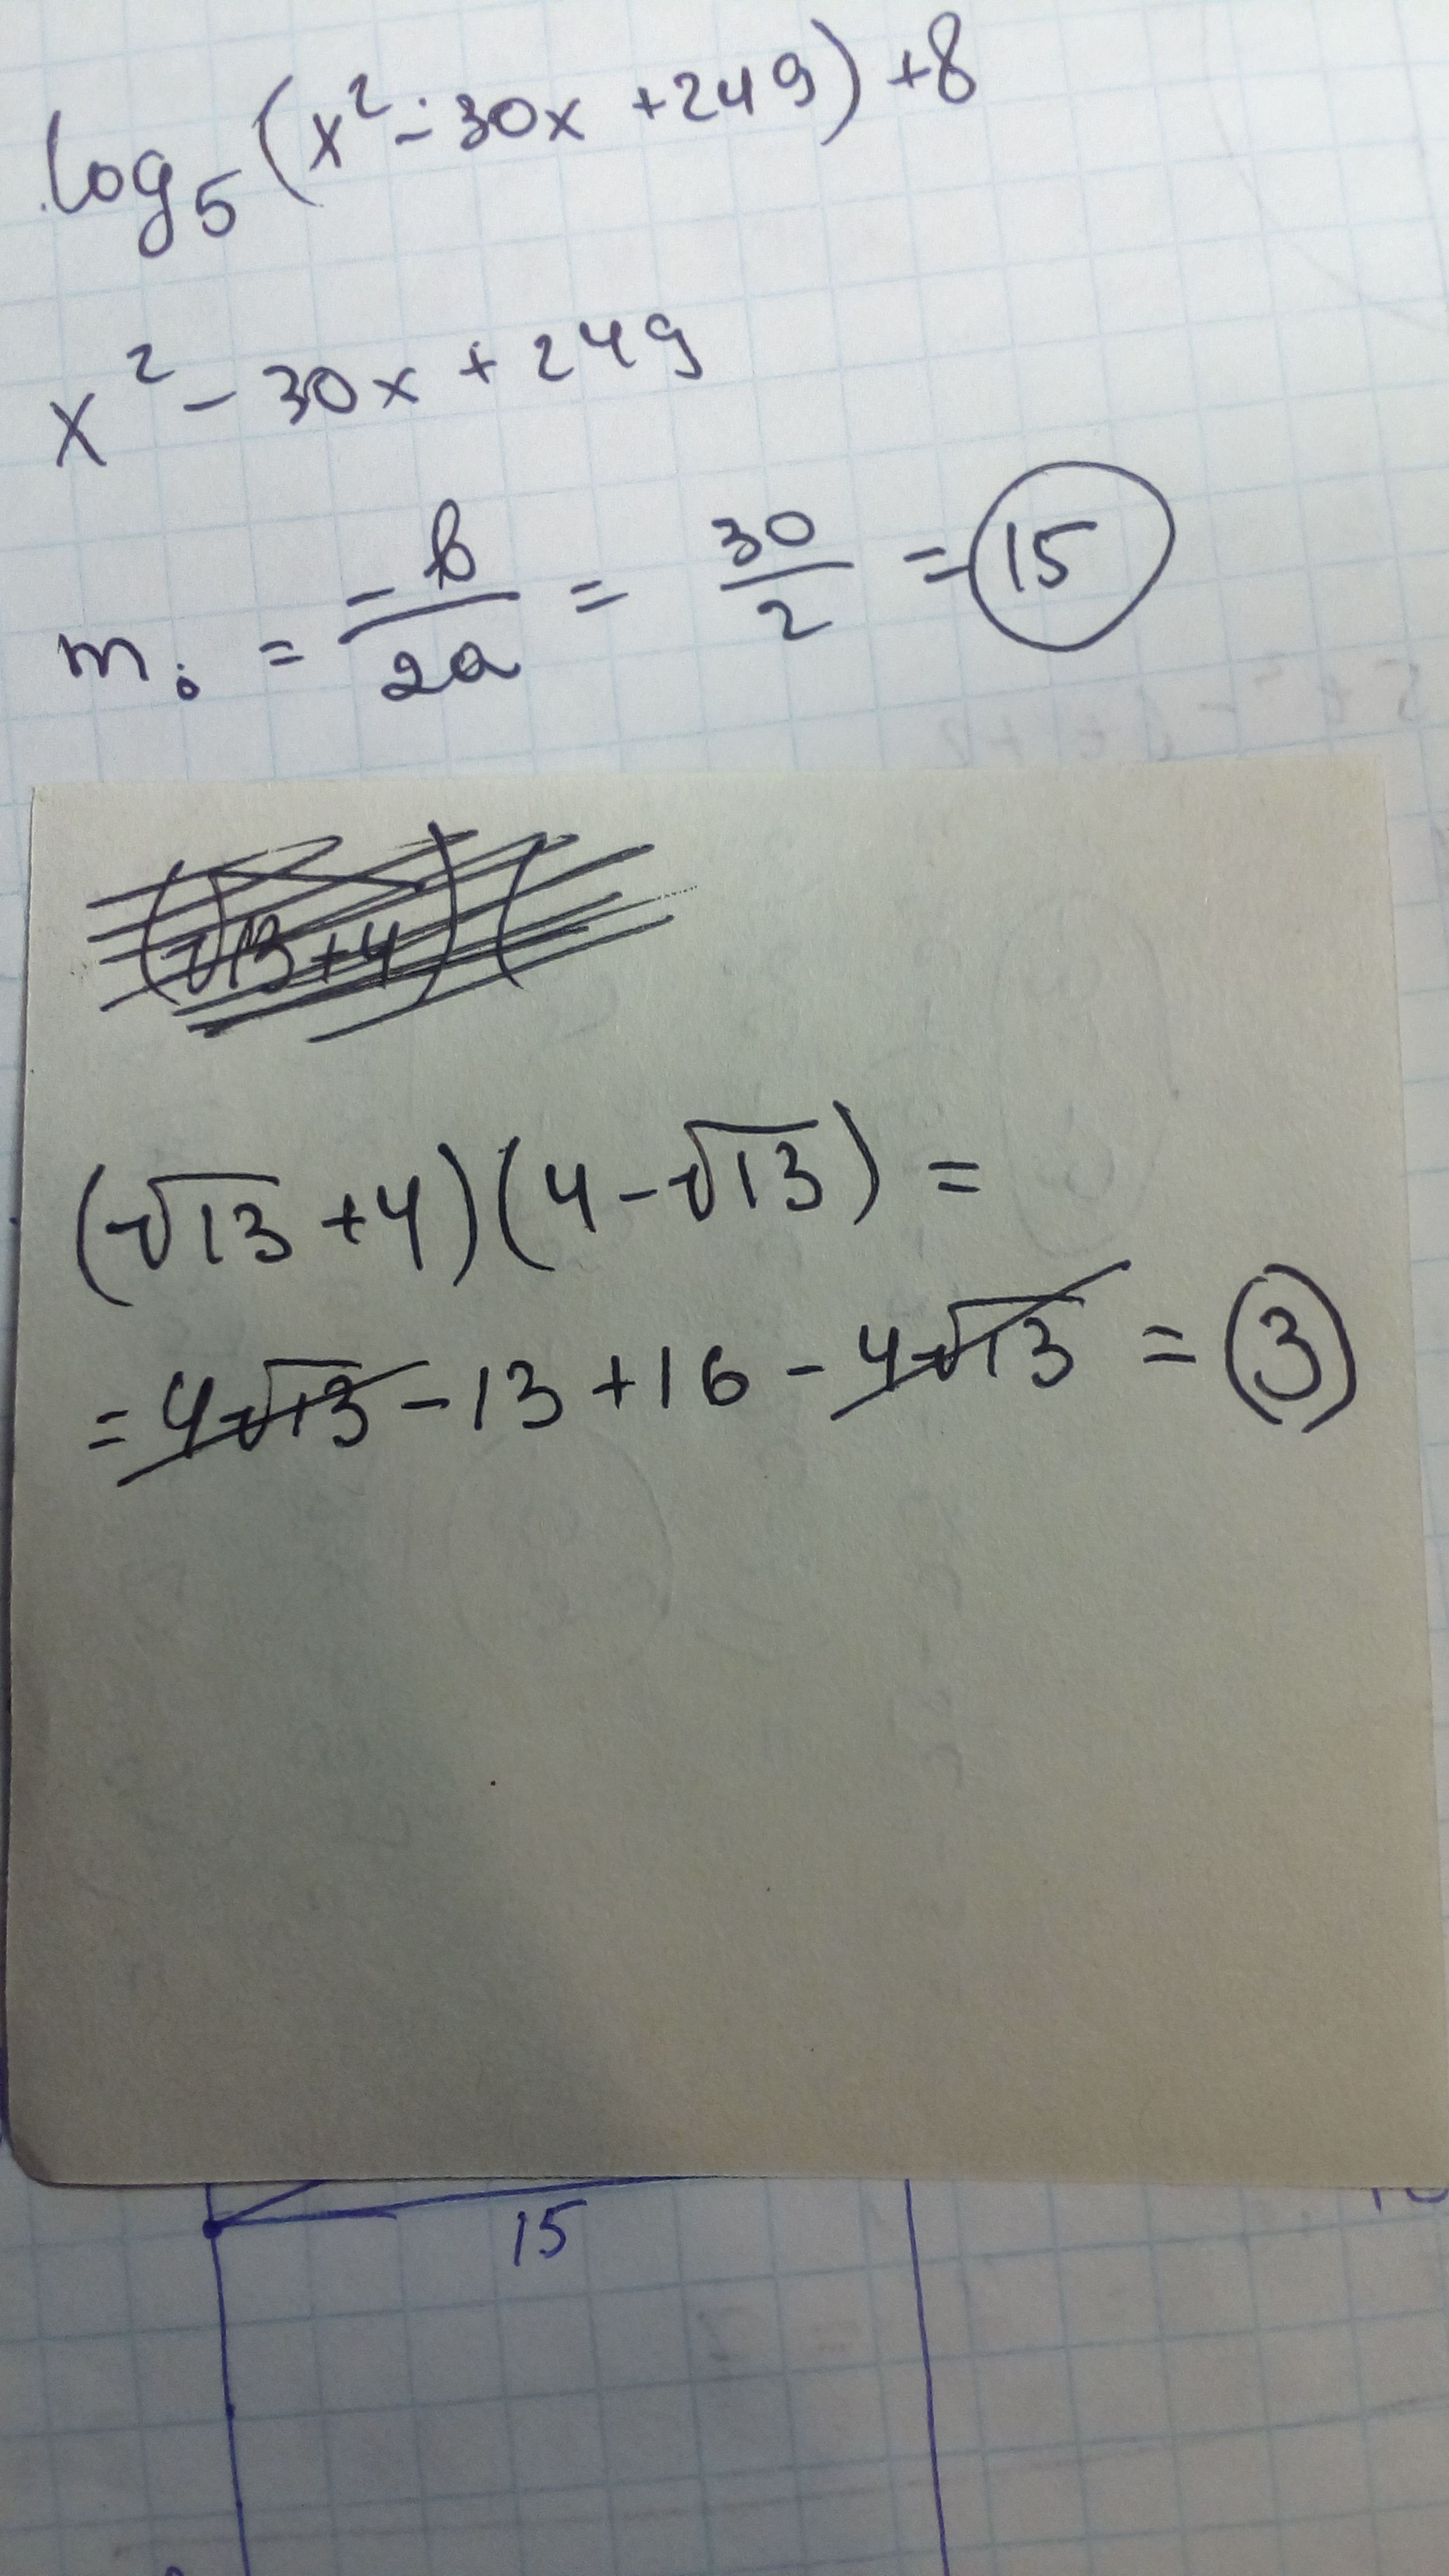 log₅(x² - 30x + 249) + 8
x² - 30x + 249
m₀ = -b/2a = 30/2 = 15
(√13 + 4)(
(√13 + 4)(4 - √13) =
= 4√13 - 13 + 16 - 4√13 = 3
15